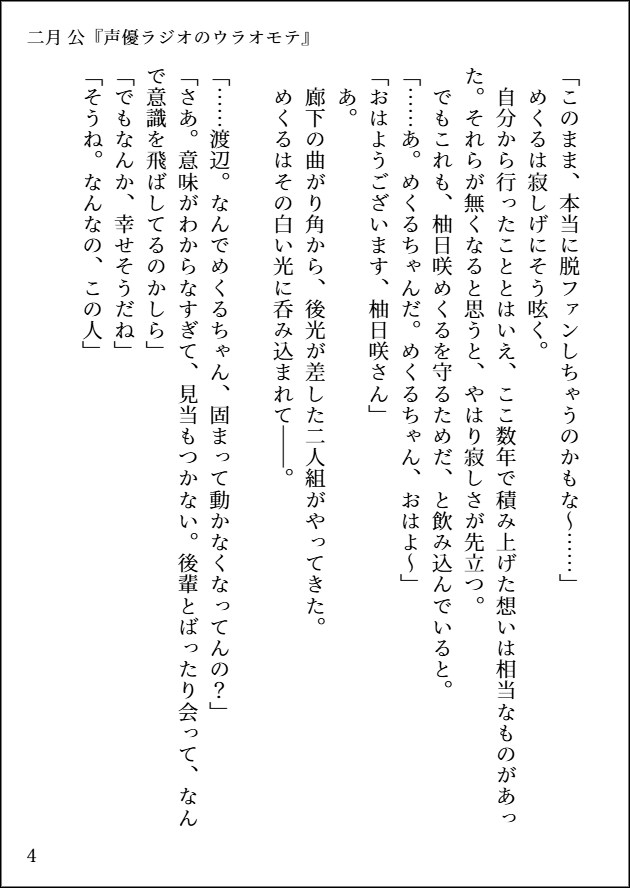 二月 公『声優ラジオのウラオモテ』
「このまま、本当に脱ファンしちゃうのかもな〜……」
めくるは寂しげにそう呟く。
自分から行ったこととはいえ、ここ数年で積み上げた想いは相当なものがあっ
た。それらが無くなると思うと、やはり寂しさが先立つ。
でもこれも、柚日咲めくるを守るためだ、と飲み込んでいると。
「……あ。めくるちゃんだ。めくるちゃん、おはよ〜」
「おはようございます、柚日咲さん」
あ。
廊下の曲がり角から、後光が差した二人組がやってきた。
めくるはその白い光に呑み込まれて――。
「……渡辺。なんでめくるちゃん、固まって動かなくなってんの？」
「さあ。意味がわからなすぎて、見当もつかない。後輩とばったり会って、なん
で意識を飛ばしてるのかしら」
「でもなんか、幸せそうだね」
「そうね。なんなの、この人」
4